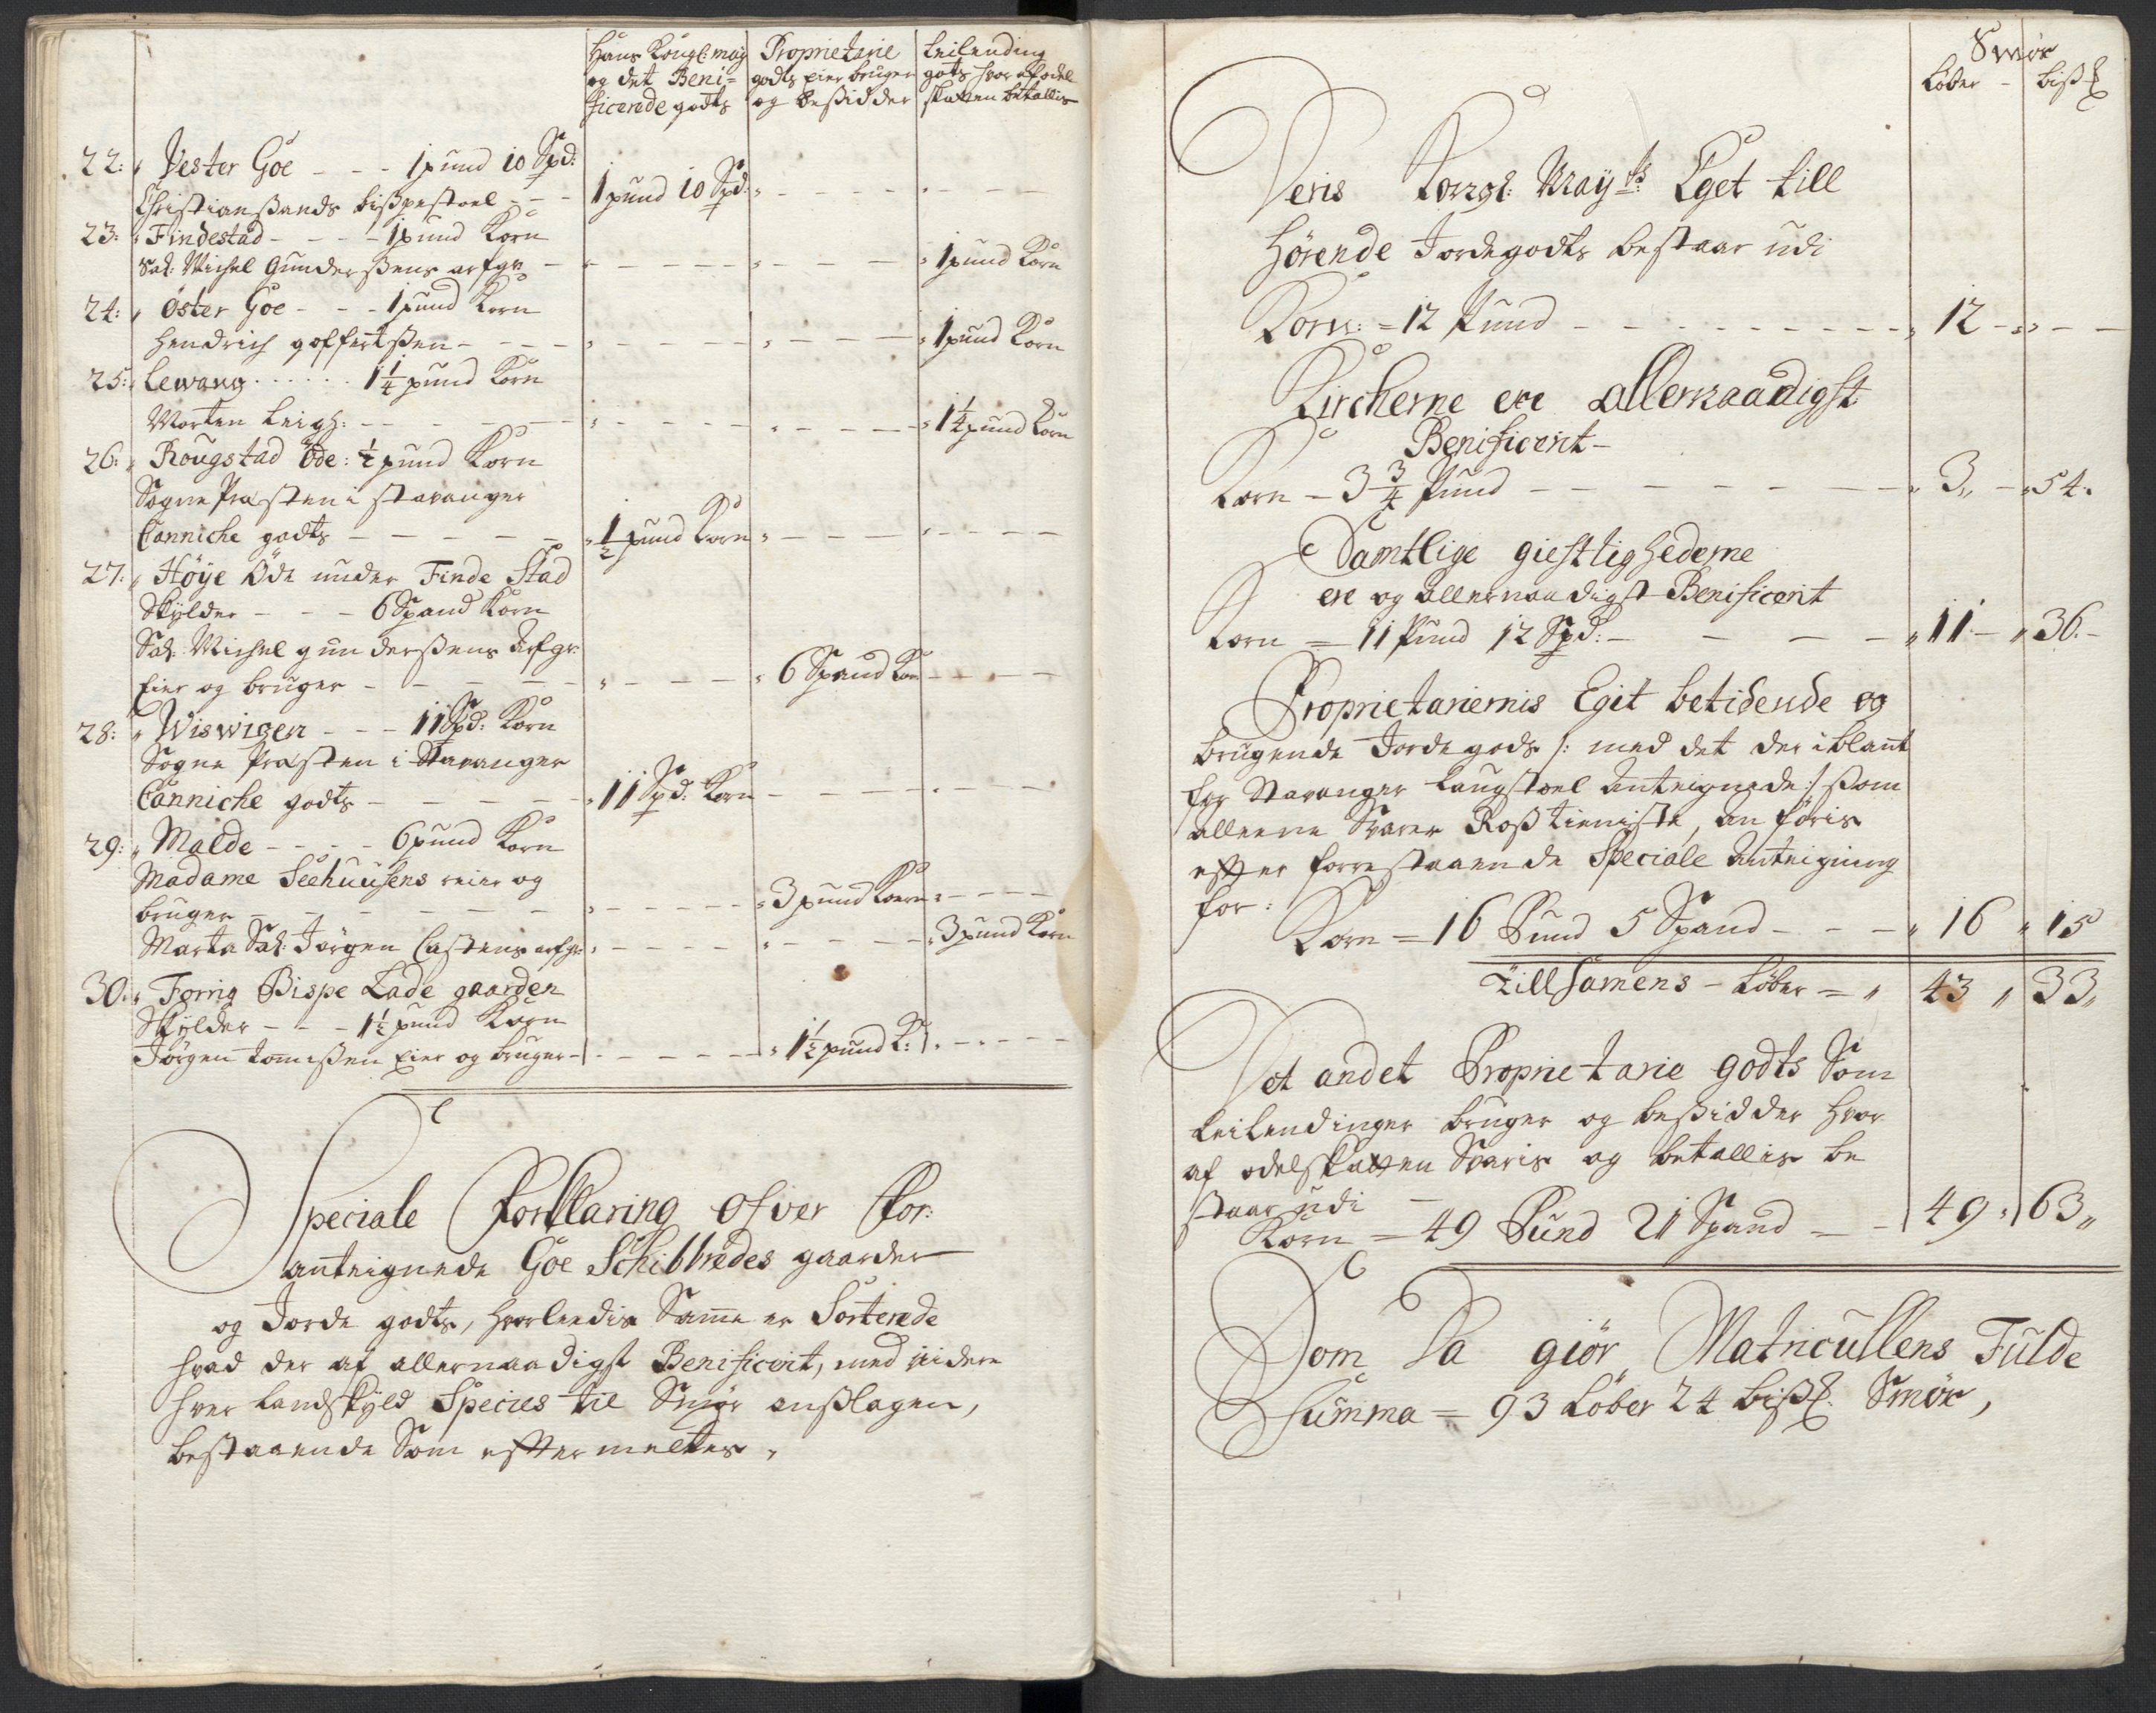 Hans Kongl: may
og det Beni=
ficerede godts
Proprietarie
godts eier bruger
og besidder
Leilending
gots hvor af odel
skatten betallis
22: Vester Goe - - - 1 pund 10 Spd:
Christiansands bispestoel - - - 1 pund 10 Spd:
23: Findestad - - - - 1 pund Korn
Sal: Michel Gundersens arfgr - 1 pund Korn
24: Öster Goe - - - 1 pund Korn
Hendrich goffertsen - - - - 1 pund Korn
25: Lewang . . . . . . 1 1/4 pund Korn
Morten Leigh: - - - - 1 1/4 pund Korn
26: Rougstad Öde: 1/2 pund Korn
Sogne Præsten i stavanger
Canniche godts - - - - - 1/2 pund Korn
27: Höye Öde under Finde Stad
Skylder - - - 6 Spand Korn
Sal: Michel gundersens Arfgr:
Eier og bruger - - - - - 6 Spand Kor
28: Wiswigen - - - 11 Spd: Korn
Sogne Præsten i Stavanger
Canniche godts - - - - - 11 Spd: Korn
29: Malde - - - - 6 pund Korn
Madame Seehuusens eier og
bruger - - - - - - 3 pund Korn
Marta Sal: Jörgen Castens arfgr: - - - - 3 pund Korn
30. Forrig Bispe Lade gaarden
Skylder - - - 1 1/2 pund Korn
Jörgen Tomesen Eier og bruger - - - - 1 1/2 pund K:
Speciale Forklaring ofver for:
anteignede Goe Schibbredes gaarder
og Jorde godts, hvorleedis Samme er Sorterede
hvad der af allernaadigst Benificerit, med videre
hver Landskyld Species til Smör anslagen,
bestaaende Som effter meltes,
Smör
Löber - bispd
Deris Kongl: Mayts: Eget till
hörende Jordegodts bestaar udi
Korn: = 12 Pund - - - - - - - - 12 - - -
Kircherne ere allernaadigst
Benificerit -
Korn - 3 3/4 Pund - - - - - - - 3 - 54.
Samtlige giestlighederne
ere og allernaadigst Benificerit
Korn = 11 Pund 12 Spd: - - - - 11 - 36. -
Proprietariernis Egit betidende og
brugende Jordegods /: med det der iblant
for Stavanger Laugstoel Anteignede :/ som
alleene Svarer Rostieniste, an föris
effter forrestaaende Speciale Anteigning
for:
Korn = 16 Pund 5 Spand - - - 16 15
Till Samens - Löber = 43 33
Det andet Proprietarie godts Som
Leilendinger bruger og besidder hvor
af odelskatten Svaris og betallis be
staar udi
Korn = 49 Pund 21 Spand - - 49 63
Som Da giör Matricullens Fulde
Summa = 93 Löber 24 bispd. Smör,